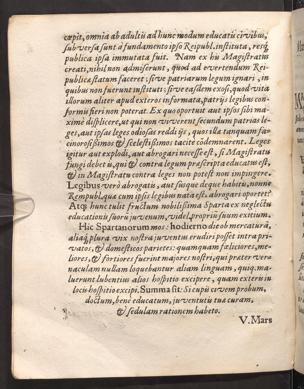 cœpit, omnia ab adultis ad hunc modum educatis civibus,
subversa sunt à fundamento ipso Reipubl. instituta, resq́;
publica ipsa immutata fuit. Nam ex hu Magistratus
creati, nihil non admiserunt, quod ad evertendum Rei-
publicæ statum faceret: sive patriarum legum ignari, in
quibus non fuerunt instituti: sive easdem exosi, quod vita
illorum aliter apud exteros informata, patriis legibus con-
formis fieri non poterat. Ex quo oportuit aut ipsos sibi ma-
ximè displicere, ut qui non viverent secundum patrias le-
ges, aut ipsas leges odiosas reddi iis, quos illa tanquam fa-
cinorosissimos & scelestissimos tacitè cōdemnarent. Leges
igitur aut explodi, aut abrogari necesse est, si Magistratu
fungi debet is, qui & contra legum præscripta educatus est,
& in Magistratu contra leges non potest non impingere.
Legibus verò abrogatis, aut susque deque habitis, nonne
Rempubl. quæ cum ipsis legibus nata est, abrogari oportet?
Atq́; hunc tulit fructum nobilissima Sparta ex neglectu
educationis suorū juvenum, videl. propriū suum exitium.
Hic Spartanorum mos: hodierno die ob mercaturā,
aliaq́; plura vix nostra juventus erudiri posset intra pri-
vatos, & domesticos parietes: quamquam feliciores, me-
liores, & fortiores fuerint majores nostri, qui præter ver-
naculam nullam loquebantur aliam linguam, quoq́; ma-
luerunt lubentius alios hospitio excipere, quam exteris in
locis hospitio excipi. Summa sit: Si cupis civem probum,
doctum, bene educatum, juventutis tuæ curam,
& sedulam rationem habeto.
V. Mars